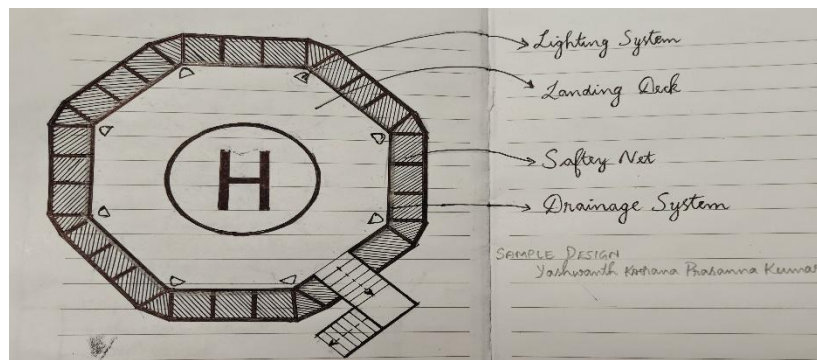 Lighting System
Landing Deck
H
Saftey Net
Drainage System
SAMPLE DESIGN
Yashwanth Prasanna Kumar